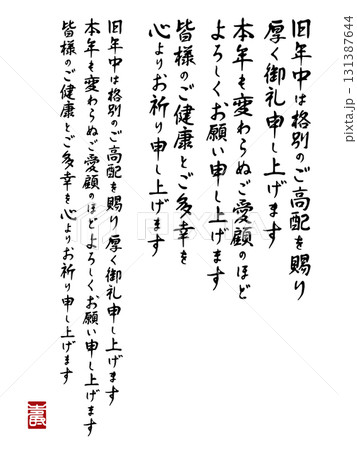 旧年中は格別のご高配を賜り
厚く御礼申し上げます
本年も変わらぬご愛顧のほど
よろしくお願い申し上げます
皆様のご健康とご多幸を
心よりお祈り申し上げます
旧年中は格別のご高配を賜り厚く御礼申し上げます
本年も変わらぬご愛顧のほどよろしくお願い申し上げます
皆様のご健康とご多幸を心よりお祈り申し上げます
PIXTA
pixta.jp - 131387644